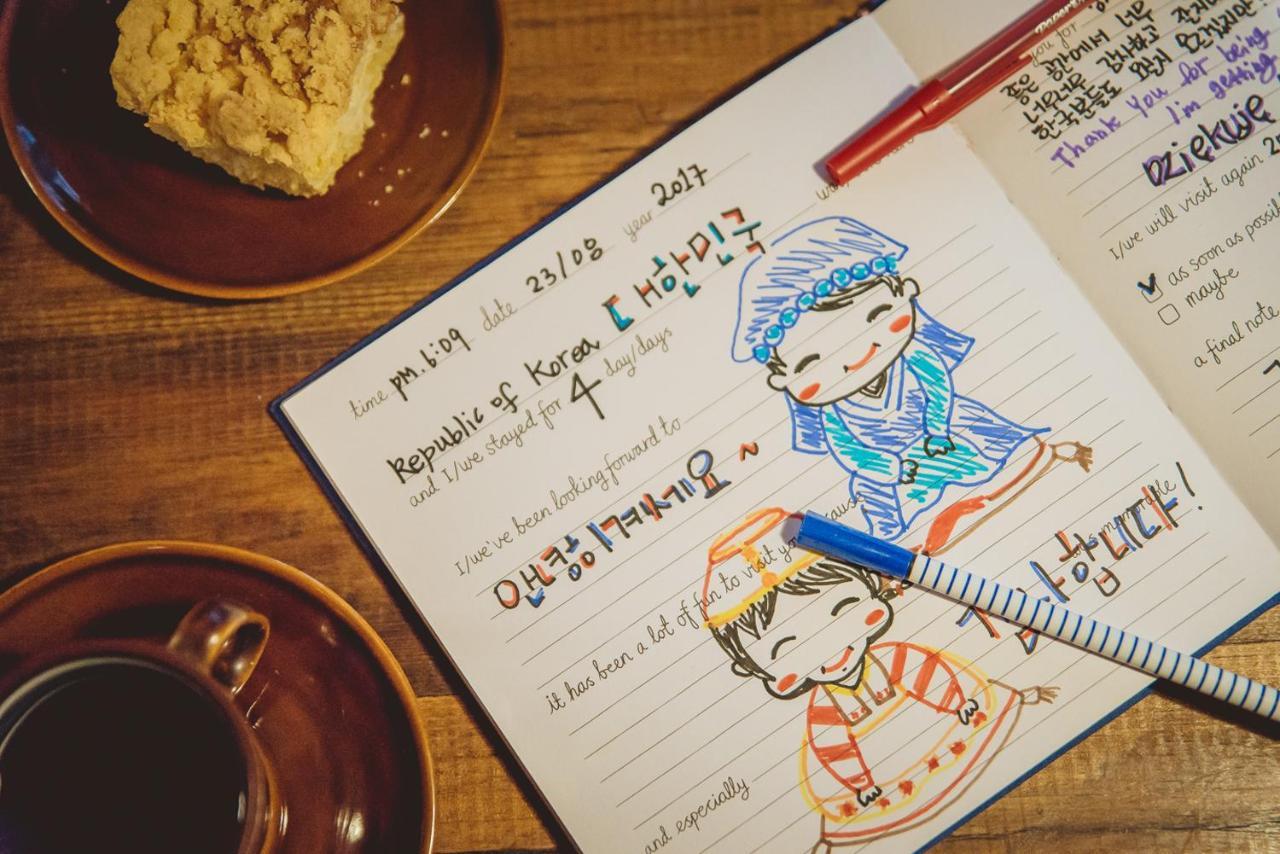 time PM.6:09 date 23/08 year 2017
Republic of Korea 대한민국
and I/we stayed for 4 day/days
I/we've been looking forward to
안녕히계세요~
it has been a lot of fun to visit
감사합니다!
and especially
you for
좋은 방에서 너무
너무너무 감사하고
한국분들도
Thank you for being
I'm getting
Dziękuję
I/we will visit again
as soon as possibl
maybe
a final note